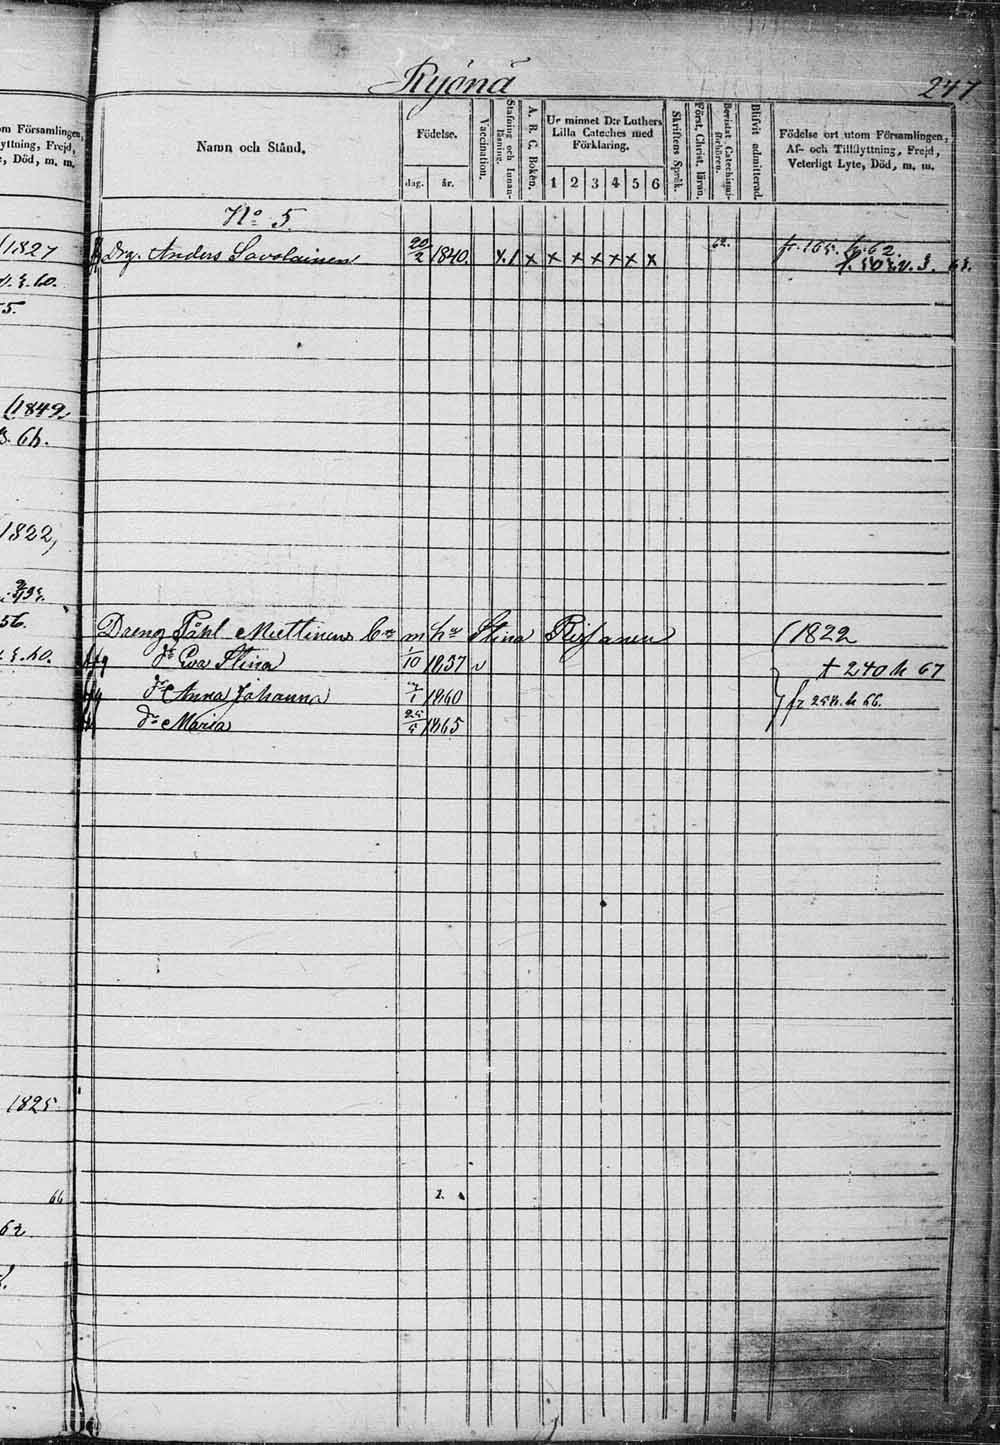 Ryönä
247
om Församlingen,
yttning, Frejd,
, Död, m. m.
Namn och Stånd.
Födelse.
dag. år.
Vaccination.
Stafning och Innanläsning.
A. B. C. Boken.
Ur minnet D:r Luthers Lilla Cateches med Förklaring.
1 2 3 4 5 6
Skriftens Språk.
Först. Christ. läran.
Bevistat Catechismiförhören.
Blifvit admitterad.
Födelse ort utom Församlingen,
Af- och Tillflyttning, Frejd,
Veterligt Lyte, Död, m. m.
No 5
(1827
Drg. Anders Savolainen 20/2 1840. x x x x x x x 62. fr. 165. 62.
63.
60.
5.
(1849
64.
1822,
56.
Dreng Påhl Miettinens m hu Stina Pirhanen (1822
60. Eva Stina 1/10 1837 v † 240 67
Anna Johanna 1860
fr 258. 66.
Maria 25/5 1865
1825
66 1.
62